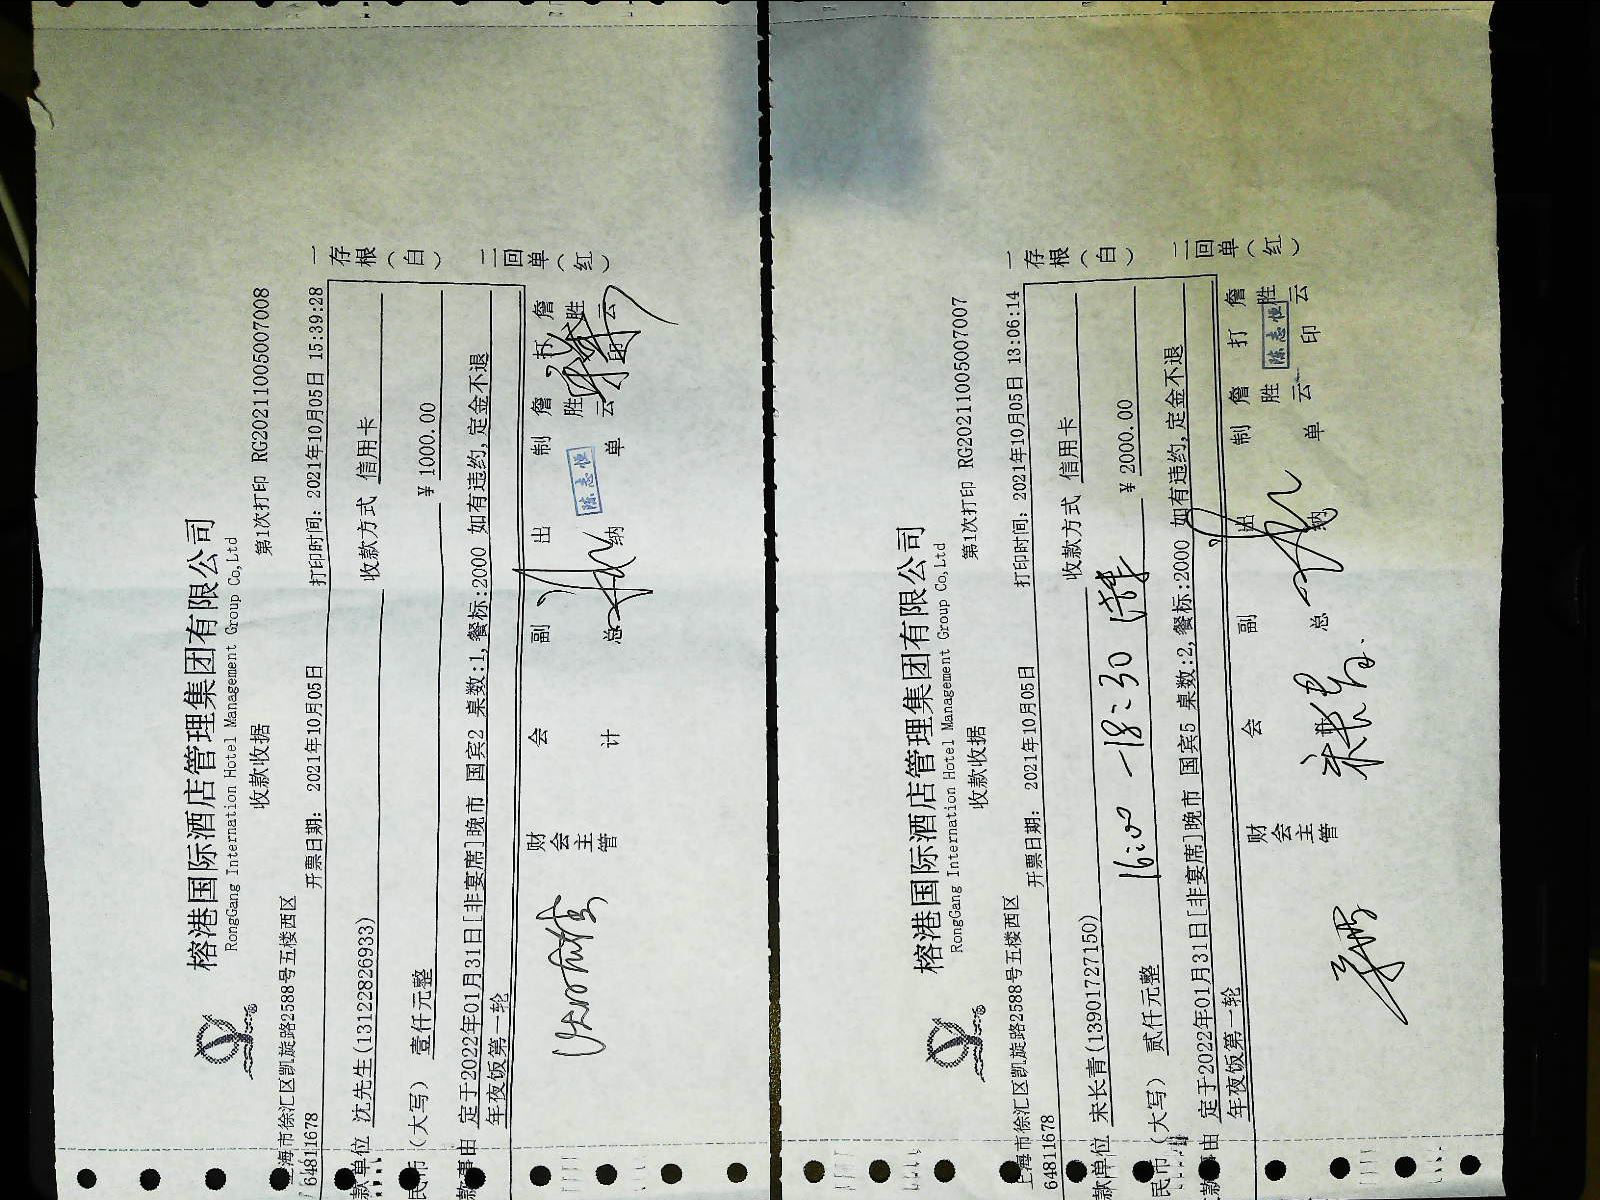 榕港国际酒店管理集团有限公司
RongGang Internation Hotel Management Group Co,Ltd
收款收据
第1次打印 RG20211005007008
上海市徐汇区凯旋路2588号五楼西区
64811678
开票日期: 2021年10月05日
打印时间: 2021年10月05日 15:39:28
款单位 沈先生(13122826933)
收款方式 信用卡
民币(大写) 壹仟元整
¥ 1000.00
款事由 定于2022年01月31日[非宴席]晚市 国宾2 桌数:1,餐标:2000 如有违约,定金不退
年夜饭第一轮
财会主管
会计
副总
出纳
陈志恒
制单
詹胜云
打印
詹胜云
一存根(白)
二回单(红)
榕港国际酒店管理集团有限公司
RongGang Internation Hotel Management Group Co,Ltd
收款收据
第1次打印 RG20211005007007
上海市徐汇区凯旋路2588号五楼西区
64811678
开票日期: 2021年10月05日
打印时间: 2021年10月05日 13:06:14
款单位 宋长青(13901727150)
收款方式 信用卡
16:00-18:30
民币(大写) 贰仟元整
¥ 2000.00
款事由 定于2022年01月31日[非宴席]晚市 国宾5 桌数:2,餐标:2000 如有违约,定金不退
年夜饭第一轮
财会主管
会
副总
出纳
制单
詹胜云
陈志恒
打印
詹胜云
一存根(白)
二回单(红)